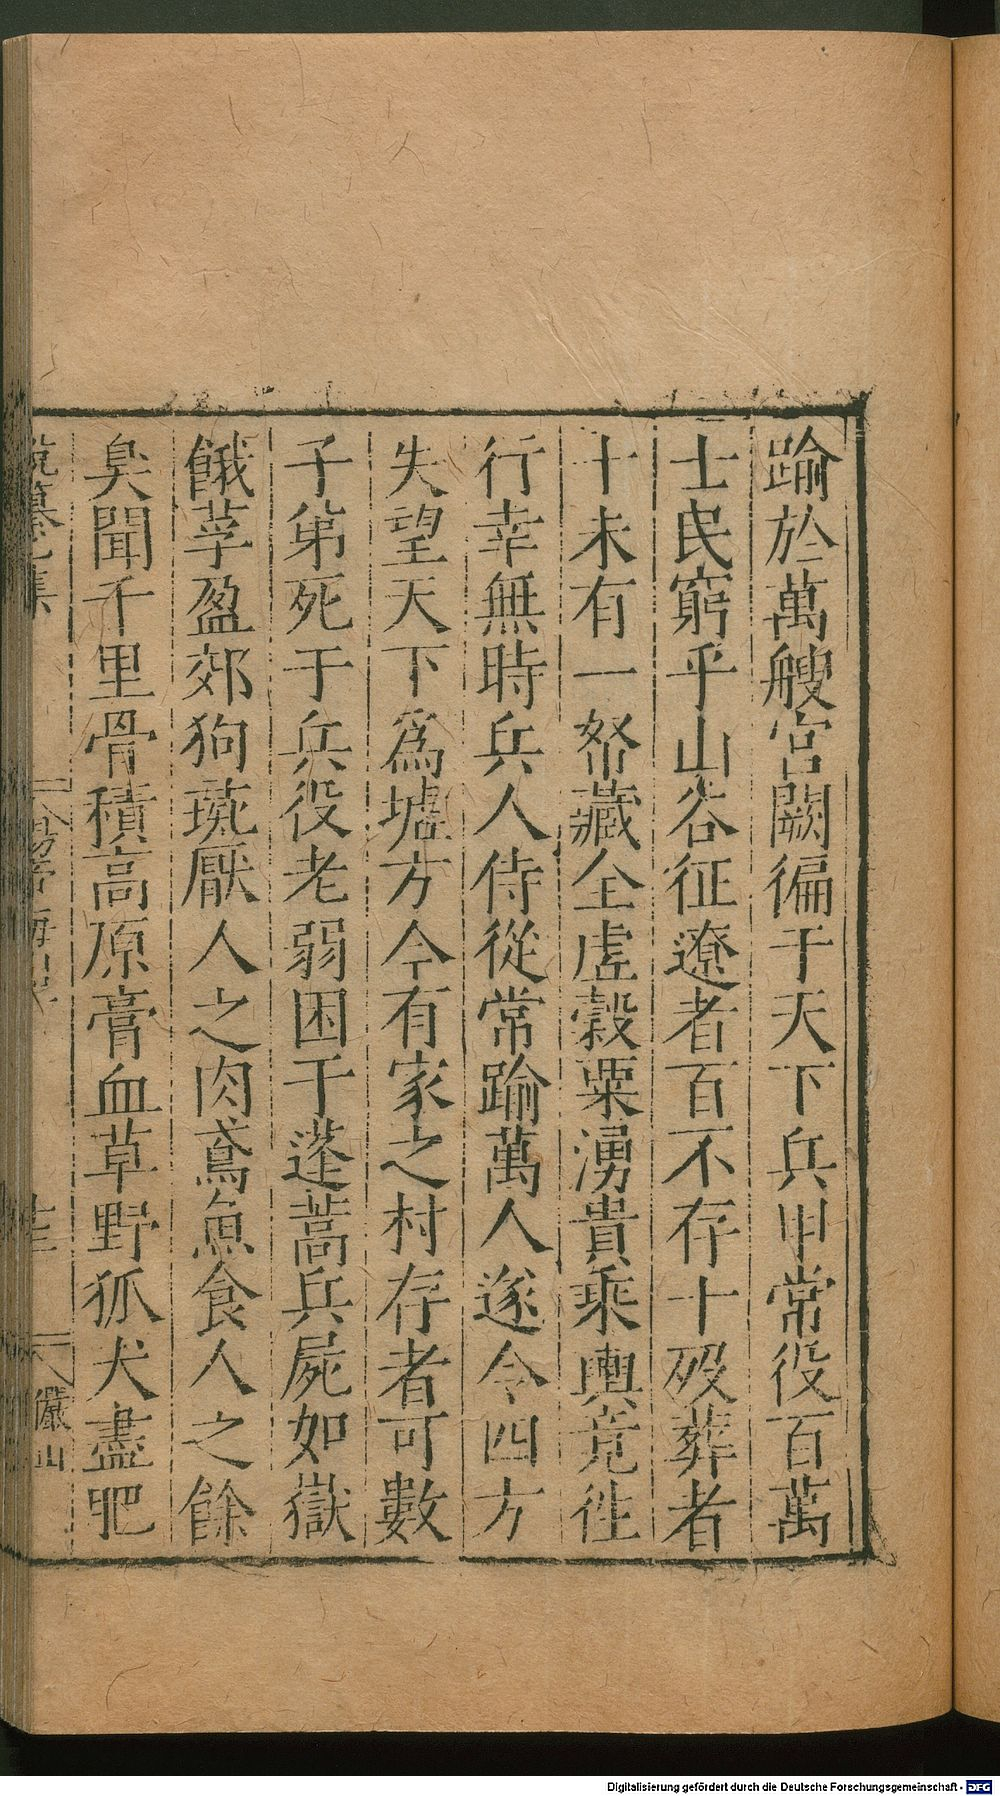 踰於萬艘宮闕徧于天下兵甲常役百萬
士民窮乎山谷征遼者百不存十歿葬者
十未有一帑藏全虛穀粟湧貴乘輿竟徃
行幸無時兵人侍從常踰萬人遂令四方
失望天下爲墟方今有家之村存者可數
子弟死于兵役老弱困于蓬蒿兵屍如嶽
餓莩盈郊狗彘厭人之肉鳶魚食人之餘
臭聞千里骨積高原膏血草野狐犬盡肥
集
儼山
Digitalisierung gefördert durch die Deutsche Forschungsgemeinschaft - DFG